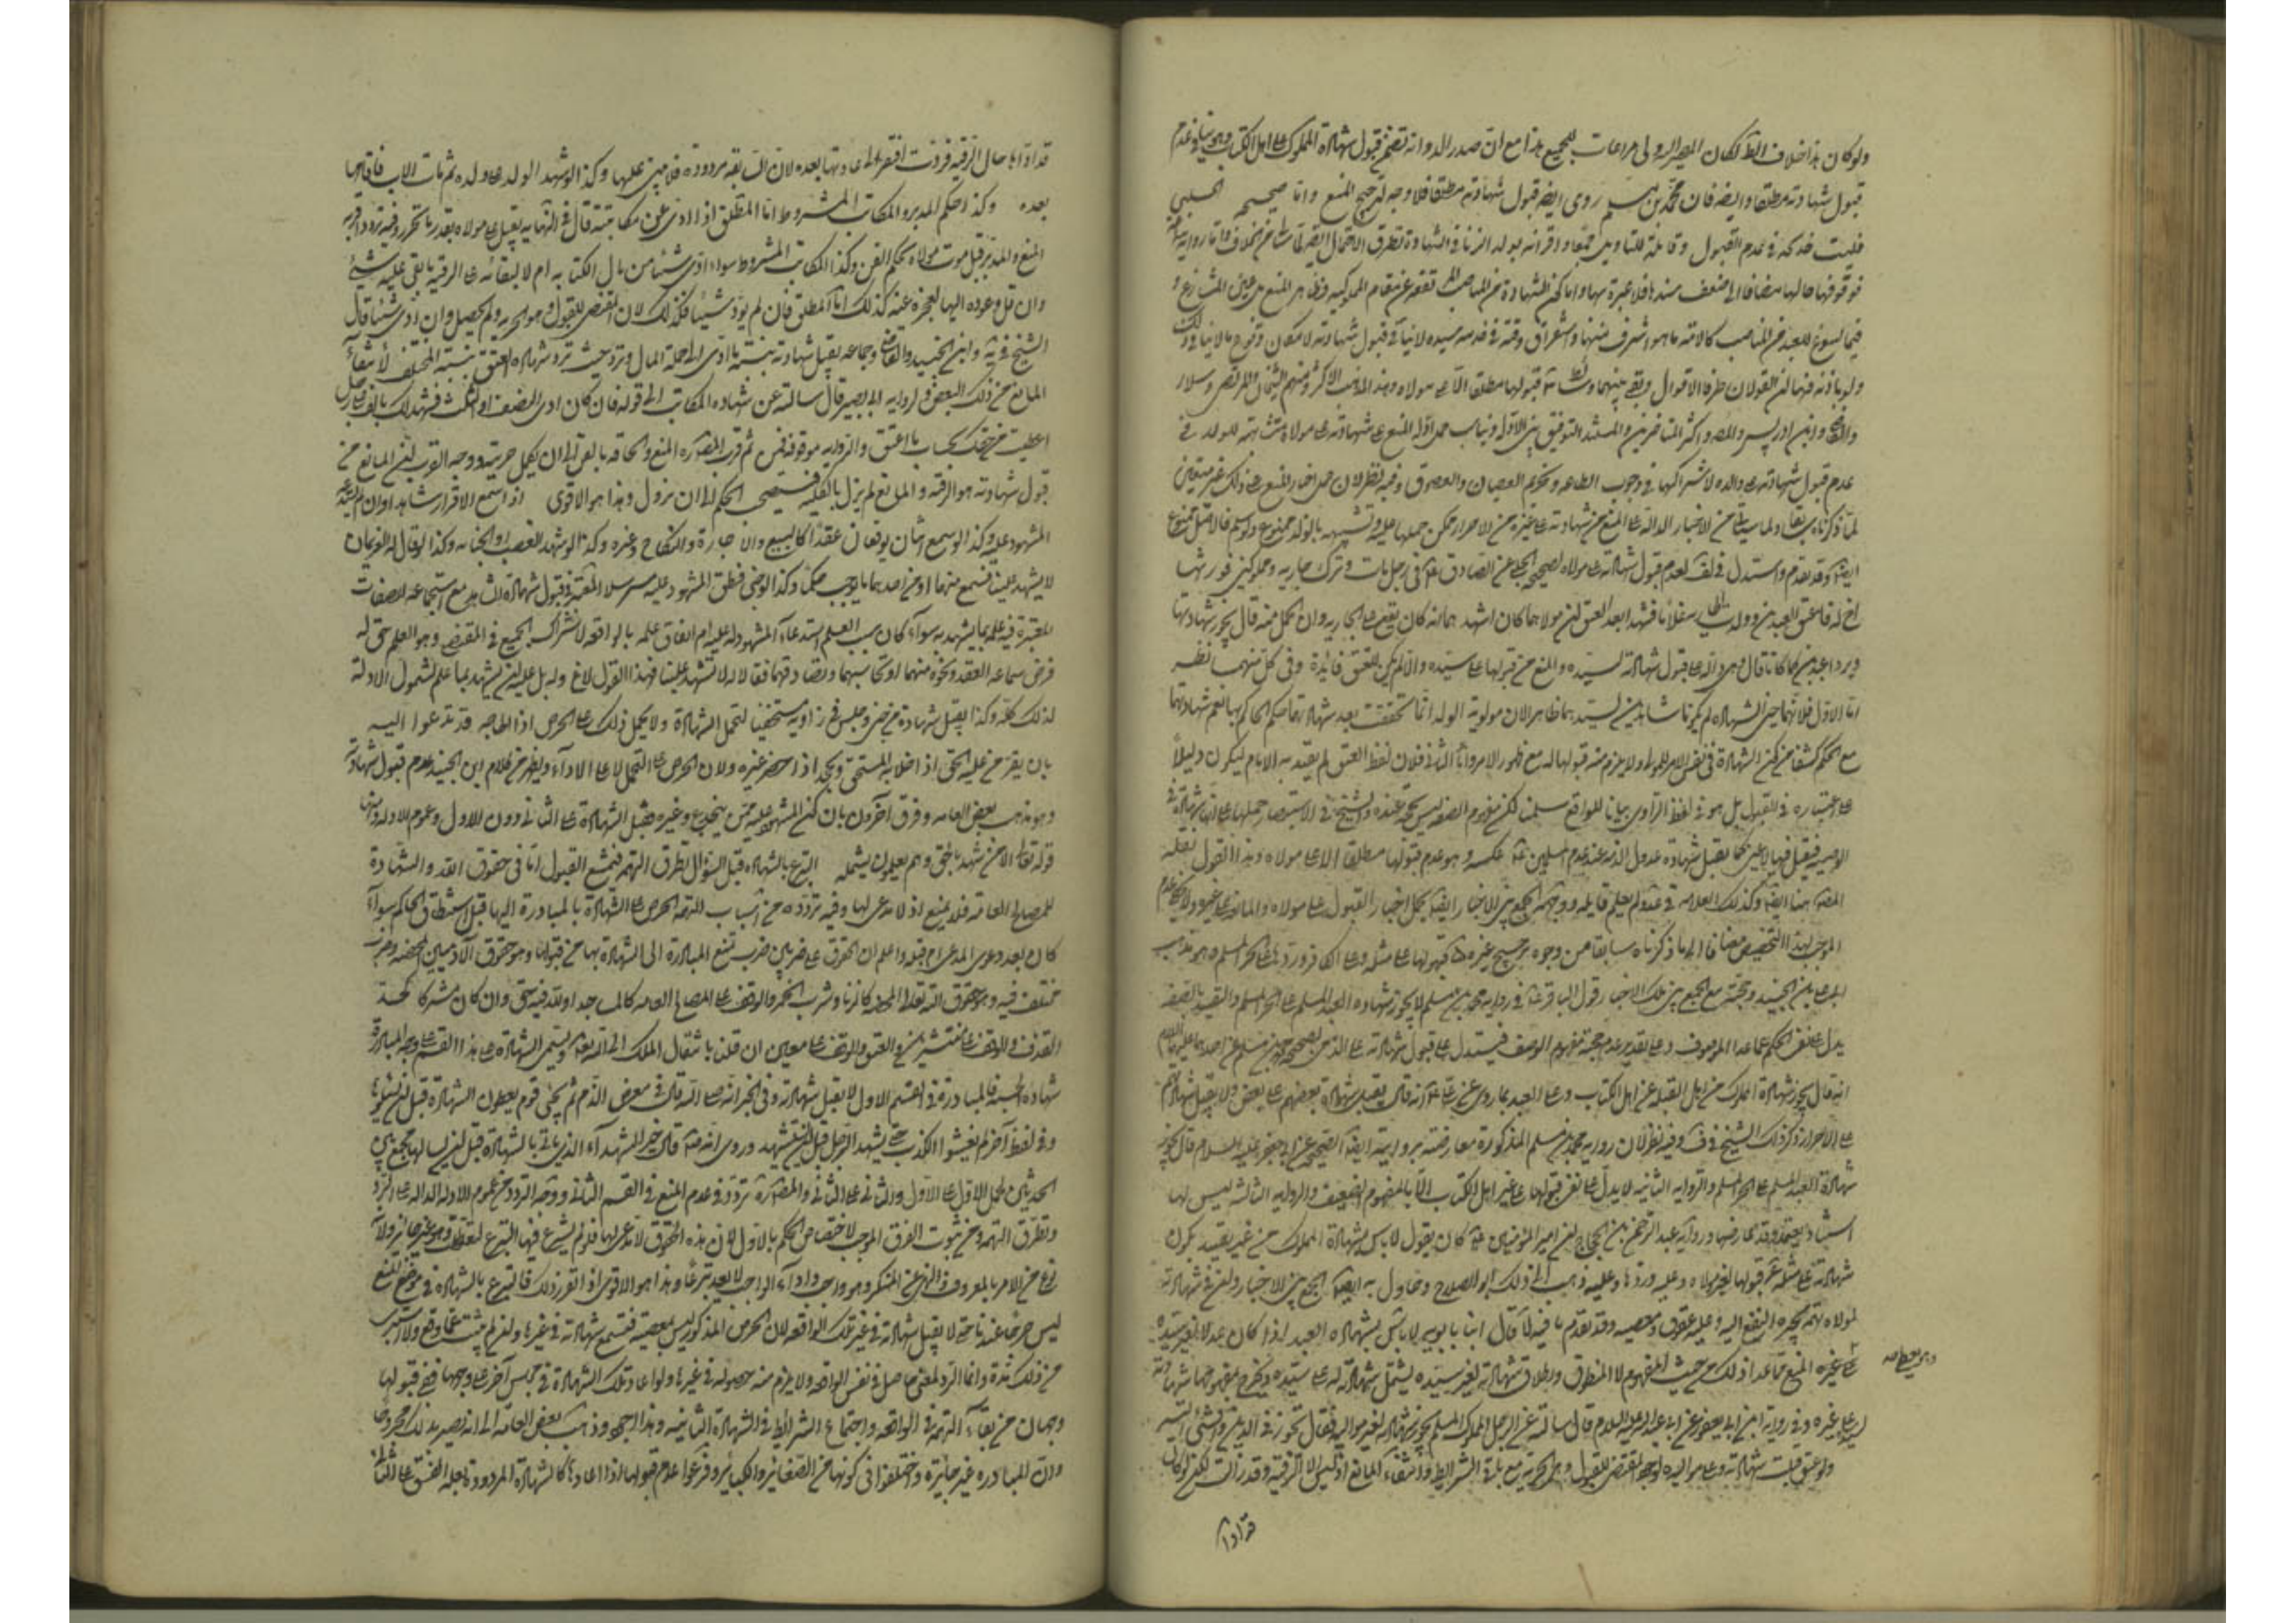 ولو كان هذا خلاف الظ لكان المصير اليه اولى مراعات للجمع هذا مع ان صدر الرواية تضمن قبول شهادة المملوك على اهل الكتاب وهو ينافي عدم
قبول شهادته مطلقا وايضه فان محمد بن مسلم روى ايضه قبول شهادته مطلقا فلا وجه لترجيح المنع واما صحيحه الحلبي
فليست في عدم القبول وقابلة للتاويل
فوقوفها حالها مضافا الى ضعف سندها فلا عبرة بها واما كون الشهادة من المناصب
فيما يسوغ للعبد من المناصب كالامامة ما هو اشرف منها واستغراق وقته في خدمة سيده لا ينافي قبول شهادته لامكان وقوع ما لا ينافي ذلك
ولو باذنه فهما لن القولان طرفا الاقوال وبقي بينهما وسائط قبولها مطلقا الا على مولاه وهذا مذهب الاكثر ومنهم الشيخان والمرتضى وسلار
والقاضي وابن ادريس والمصر واكثر المتاخرين والمستند التوفيق بين الادلة وبناسب حمل ادلة المنع على شهادته على مولاه مشابهته للولد في
عدم قبول شهادته على والده لاشتراكهما في وجوب الطاعة وتحريم العصيان والعقوق وفيه نظر لان حمل اخبار المنع على ذلك غير متعين
لما ذكرناه سابقا ولما سياتي من الاخبار الدالة على المنع من شهادته على غيره من الاحرار فيمكن حملها عليه وتشبيهه بالولد ممنوع ولو سلم فالاصل ممنوع
ايضا كما تقدم واستدل في لف لعدم قبول شهادته على مولاه لصحيحة الحلبي عن الصادق في رجل مات وترك جارية ومملوكين فورثهما
اخ له فاعتق العبدين وولدت الجارية غلاما فشهدا بعد العتق ان مولاهما كان اشهدهما انه كان يقع على الجارية وان الحمل منه قال يجوز شهادتهما
ويردا عبدين كما كانا قال وهي دالة على قبول شهادته لسيده والمنع من قبولها على سيده والا لم يكن للعتق فائدة وفي كل منهما نظر
اما الاول فلانهما حين الشهادة لم يكونا شاهدين لسيدهما ظاهرا لان مولوية الولد انما تحققت بعد شهادتهما وحكم الحاكم بها نعم شهادتهما
مع الحكم كشفا عن كون الشهادة في نفس الامر للمولى ولا يلزم منه قبولها له مع ظهور الامر واما الثاني فلان لفظ العتق لم يقيد به الامام ليكون دليلا
على اعتباره في القبول بل هو في لفظ الراوي بيانا للواقع سلمنا لكن مفهوم الصفة ليس بحجة عنده والشيخ في الاستبصار حملها على انها شهادة في
الوصية فيقبل فيها لا غير كما يقبل شهادة عدول الذمة عند عدم المسلمين عكسه وهو عدم قبولها مطلقا الا على مولاه وهذا القول نقله
المصر هنا ايضا وكذلك العلامة في عد ولم يعلم قايله ووجهه الجمع بين الاخبار ايضا بحمل اخبار القبول على مولاه والمانع على غيره ولا يخفى عدم
الموجب لهذا التخصيص مضافا الى ما ذكرناه سابقا من وجوه ترجيح غيره قبولها على مثله وعلى الكافر وردها على الحر المسلم وهو مذهب
ابو علي بن الجنيد وحجته مع الجمع بين تلك الاخبار قول الباقر في رواية محمد بن مسلم لا يجوز شهادة العبد المسلم على الحر المسلم والتقييد بالصفة
يدل على نفي الحكم عما عدا الموصوف وعلى تقدير عدم حجية مفهوم الوصف فيستدل على قبول شهادته على الذمي بصحيحة محمد بن مسلم عن احدهما عليهما السلام
انه قال يجوز شهادة المملوك من اهل القبلة على اهل الكتاب وعلى العبد بما روي عن علي انه قال يقبل شهادة بعضهم على بعض ولا يقبل شهادتهم
على الاحرار ذكر ذلك الشيخ في ف وفيه نظر لان رواية محمد بن مسلم المذكورة معارضة بروايته ايضا الصحيحة عن ابي جعفر عليه السلام قال يجوز
شهادة العبد المسلم على الحر المسلم والرواية الثانية لا يدل على نفي قبولها على غير اهل الكتاب الا بالمفهوم الضعيف والرواية الثالثة ليس لها
اسناد يعتمد وقد عارضها رواية عبد الرحمن بن الحجاج ان امير المؤمنين كان يقول لا باس بشهادة المملوك من غير تقييد بكون
شهادته على مثله قبولها لغير مولاه وعليه وردها وعليه وذهب الى ذلك ابو الصلاح وحاول به ايضا الجمع بين الاخبار ولان في شهادته
لمولاه تهمة بجره النفع اليه وعليه عقوق ومعصية وقد تقدم ما فيه قال ابنا بابويه لا باس بشهادة العبد اذا كان عدلا لغير سيده
على غيره المنع مما عدا ذلك من حيث المفهوم لا المنطوق واطلاق شهادته لغير سيده يشتمل شهادته له على سيده ويخرج بمفهومها شهادته
وهو يعطي صح
لسيده على غيره وفي رواية ابن ابي يعفور عن ابي عبد الله عليه السلام قال سالته عن الرجل المملوك المسلم يجوز شهادته لغير مواليه فقال تجوز في الدين والشيء اليسير
ولو عتق قبلت شهادته وعلى مواليه لوجود المقتضي للقبول وهو الحرية مع باقي الشرايط وانتفاء المانع اذ ليس الا الرقية وقد زالت لكن لو كان
قد اداها
قد اداها حال الرقية فردت افتقر الى اعادتها بعده لان السابقة مردودة فلا يبنى عليها وكذا لو شهد الولد على والده ثم مات الاب فاقامها
بعده وكذا حكم المدبر والمكاتب المشروط اما المطلق اذا ادى من مكاتبته قال في النهاية يقبل على مولاه بقدر ما تحرر وفيه تردد اقربه
المنع والمدبر قبل موت مولاه بحكم القن وكذا المكاتب المشروط سواء ادى شيئا من مال الكتابة ام لا لبقائه على الرقية ما بقي عليه شيء
وان قل وعوده اليها لعجزه عنه كذلك اما المطلق فان لم يؤد شيئا فكذلك لان المقتضي للقبول هو الحرية ولم يحصل وان ادى شيئا قال
الشيخ في ية وابن الجنيد والقاضي وجماعة يقبل شهادته بنسبة ما ادى الى جملة المال
المانع من ذلك البعض ولرواية ابي بصير قال سالته عن شهادة المكاتب الى قوله فان كان ادى النصف او الثلث فشهد لك بالف على رجل
اعطيت من حقك بحساب ما اعتق والرواية موقوفة ثم قرب المصر المنع والحاقه بالقن الى ان يكمل حريته ووجه القرب ان المانع من
قبول شهادته هو الرقية والمانع لم يزل بالكلية فيستصحب الحكم الى ان يزول وهذا هو الاقوى اذا سمع الاقرار شاهد وان لم يستدعه
المشهود عليه وكذا لو سمع اثنان يوقعان عقدا كالبيع والاجارة والنكاح وغيره وكذا لو شهد الغصب او الجناية وكذا لو قال له الغريمان
لا يشهد علينا فسمع منهما او من احدهما ما يوجب حكما وكذا لو خبي فنطق المشهود عليه مسترسلا المعتبر في قبول شهادة الشاهد مع استجماعه للصفات
المعتبرة فيه علمه بما يشهد به سواء كان سبب العلم استدعاء المشهود له وعليه ام اتفاق علمه بالواقعة لاشتراك الجميع في المقتضي وهو العلم حتى لو
فرض سماعه العقد ونحوه منهما او تحاسبهما وتصادقهما فقالا له لا تشهد علينا فهذا القول لاغ وله بل عليه ان يشهد بما علم لشمول الادلة
لذلك كله وكذا يقبل شهادة من خبي وجلس في زاوية مستخفيا لتحمل الشهادة ولا يحمل ذلك على الحرص اذ الحاجة قد تدعوا اليه
بان يقر من عليه الحق اذا خلا به المستحق ويجحد اذا حضر غيره ولان الحرص على التحمل لا على الاداء ويظهر من كلام ابن الجنيد عدم قبول شهادته
وهو مذهب بعض العامة وفرق آخرون بان كون المشهود عليه ممن ينخدع وغيره فقبل الشهادة على الثاني دون الاول وعموم الادلة ومنها
قوله تعالى الا من شهد بالحق وهم يعلمون يشمله التبرع بالشهادة قبل السؤال تطرق التهمة فيمنع القبول اما في حقوق الله والشهادة
للمصالح العامة فلا يمنع اذ لا مدعي لها وفيه تردد من اسباب التهمة الحرص على الشهادة بالمبادرة اليها قبل استنطاق الحاكم سواء
كان بعد دعوى المدعي ام قبله واعلم ان الحقوق على ضربين ضرب تمنع المبادرة الى الشهادة بها من قبولها وهو حقوق الآدميين المحضة وضرب
مختلف فيه وهو حقوق الله تعالى المحضة كالزنا وشرب الخمر والوقف على المصالح العامة كالمساجد او لله فيه حق وان كان مشتركا كحد
القذف والوقف على منتشرين والعتق والوقف على معين ان قلنا بانتقال الملك الى الله تعالى ويسمى الشهادة على هذا القسم على وجه المبادرة
شهادة الحسبة فالمبادرة في القسم الاول لا يقبل شهادته وفي الخبر انه صلى الله قال في معرض الذم ثم يجيء قوم يعطون الشهادة قبل ان يسئلوها
وفي لفظ آخر ثم يفشوا الكذب حتى يشهد الرجل قبل ان يستشهد وروي انه قال خير الشهداء الذي ياتي بالشهادة قبل ان يسالها جمع بين
الحديثين بحمل الاول على الاول والثاني على الثاني والمصر تردد في عدم المنع في القسم الثاني ووجه التردد من عموم الادلة الدالة على الرد
وتطرق التهمة ومن ثبوت الفرق الموجب لاختصاص الحكم بالاول لان هذه الحقوق لا مدعي لها فلو لم يشرع فيها التبرع لتعطلت وهو غير جائز ولانه
نوع من الامر بالمعروف والنهي عن المنكر وهو واجب واداء الواجب لا يعد تبرعا وهذا هو الاقوى اذا تقرر ذلك فالتبرع بالشهادة في موضع المنع
ليس جرحا عندنا حتى لا يقبل شهادته في غير تلك الواقعة لان الحرص المذكور ليس بمعصية فتسمع شهادته في غيرها وان لم يتب عما وقع
من ذلك وانما الرد لمعنى حاصل في نفس الواقعة ولا يلزم منه حصوله في غيرها ولو اعاد تلك الشهادة في مجلس آخر على وجهها ففي قبولها
وجهان من بقاء التهمة في الواقعة واجتماع الشرايط في الشهادة الثانية وهذا اوجه وذهب بعض العامة الى انه يصير بذلك مجروحا
وان المبادرة غير جائزة واختلفوا في كونها من الصغاير او الكباير وفرعوا عدم قبولها اذا اعادها كالشهادة المردودة بعلة الفسق